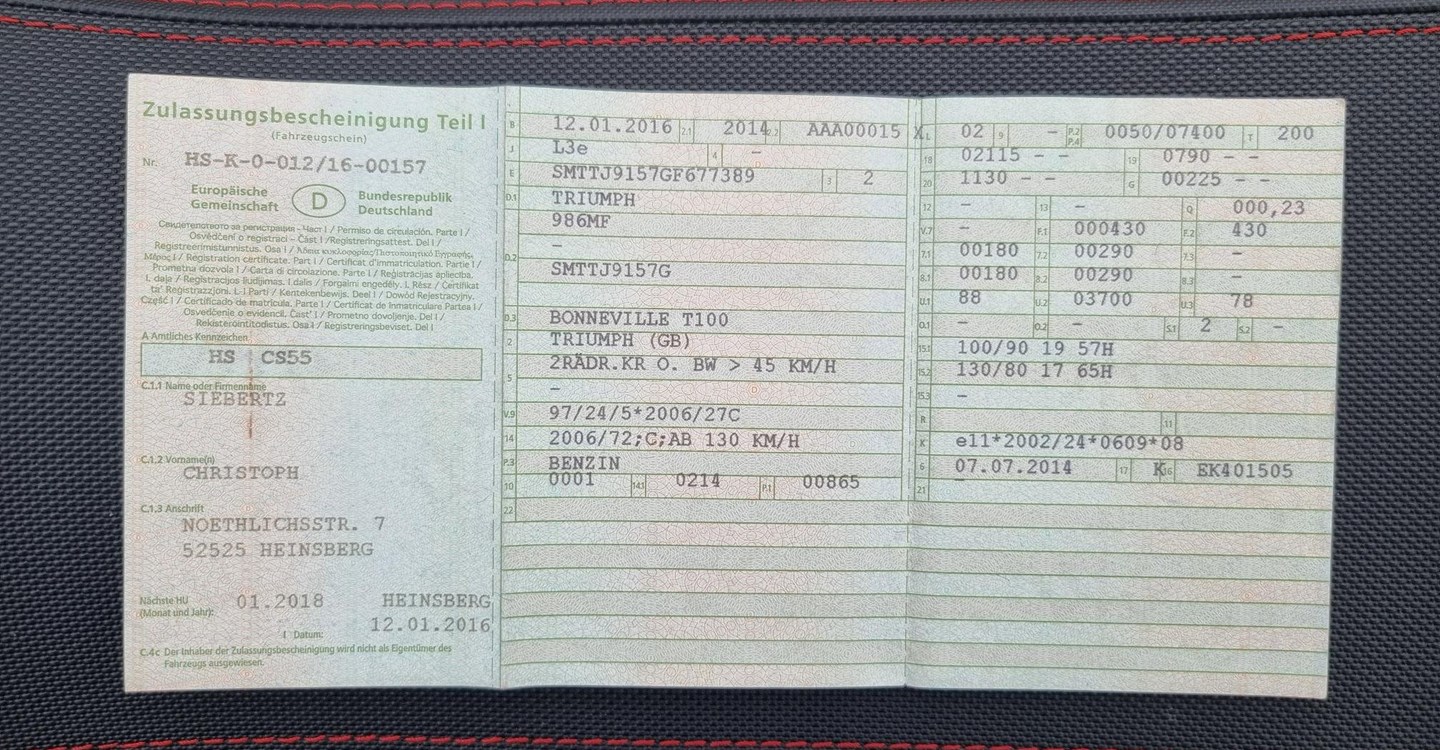 Zulassungsbescheinigung Teil I
(Fahrzeugschein)
Nr. HS-K-0-012/16-00157
Europäische Gemeinschaft
D
Bundesrepublik Deutschland
Свидетелството за регистрация – Част I / Permiso de circulación. Parte I /
Osvědčení o registraci – Část I / Registreringsattest. Del I /
Registreerimistunnistus. Osa I / Άδεια κυκλοφορίας/Πιστοποιητικό Εγγραφής.
Μέρος I / Registration certificate. Part I / Certificat d'immatriculation. Partie I /
Prometna dozvola I / Carta di circolazione. Parte I / Reģistrācijas apliecība.
I. daļa / Registracijos liudijimas. I dalis / Forgalmi engedély. I. Rész / Ċertifikat
ta' Reġistrazzjoni. L-I Parti / Kentekenbewijs. Deel I / Dowód Rejestracyjny.
Część I / Certificado de matrícula. Parte I / Certificat de înmatriculare Partea I /
Osvedčenie o evidencii. Časť I / Prometno dovoljenje. Del I /
Rekisteröintitodistus. Osa I / Registreringsbeviset. Del I
A Amtliches Kennzeichen
HS CS55
C.1.1 Name oder Firmenname
SIEBERTZ
C.1.2 Vorname(n)
CHRISTOPH
C.1.3 Anschrift
NOETHLICHSSTR. 7
52525 HEINSBERG
Nächste HU 01.2018 HEINSBERG
(Monat und Jahr):
I Datum: 12.01.2016
C.4c Der Inhaber der Zulassungsbescheinigung wird nicht als Eigentümer des
Fahrzeugs ausgewiesen.
B 12.01.2016 2.1 2014 2.2 AAA00015 X
J L3e 4 –
E SMTTJ9157GF677389 3 2
D.1 TRIUMPH
986MF
–
D.2 SMTTJ9157G
D.3 BONNEVILLE T100
2 TRIUMPH (GB)
5 2RÄDR.KR O. BW > 45 KM/H
–
V.9 97/24/5*2006/27C
14 2006/72;C;AB 130 KM/H
P.3 BENZIN
10 0001 14.1 0214 P.1 00865
22
L 02 9 – P.2 P.4 0050/07400 T 200
18 02115 – – 19 0790 – –
20 1130 – – G 00225 – –
12 – 13 – Q 000,23
V.7 – F.1 000430 F.2 430
7.1 00180 7.2 00290 7.3 –
8.1 00180 8.2 00290 8.3 –
U.1 88 U.2 03700 U.3 78
O.1 – O.2 – S.1 2 S.2 –
15.1 100/90 19 57H
15.2 130/80 17 65H
15.3 –
R 11
K e11*2002/24*0609*08
6 07.07.2014 17 K 16 EK401505
21 –